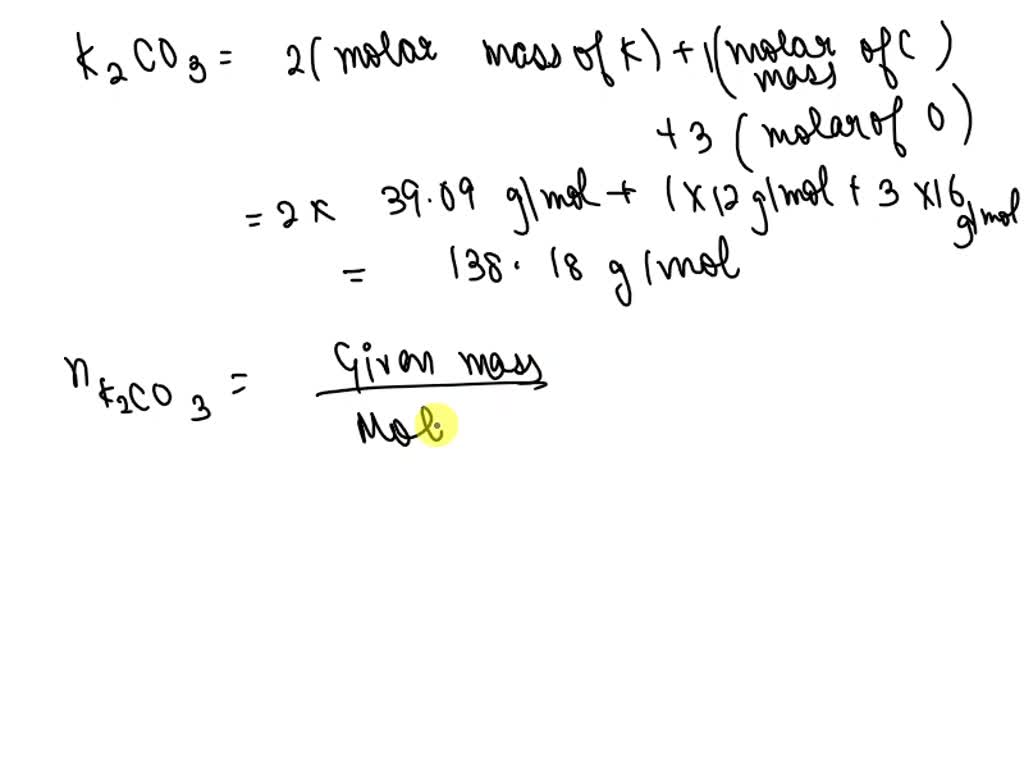 K₂CO₃ = 2(molar mass of K) + 1(molar mass of C)
+ 3 (molar of O)
= 2 × 39.09 g/mol + 1×12 g/mol + 3×16 g/mol
= 138.18 g/mol
n K₂CO₃ = Given mass
Mol